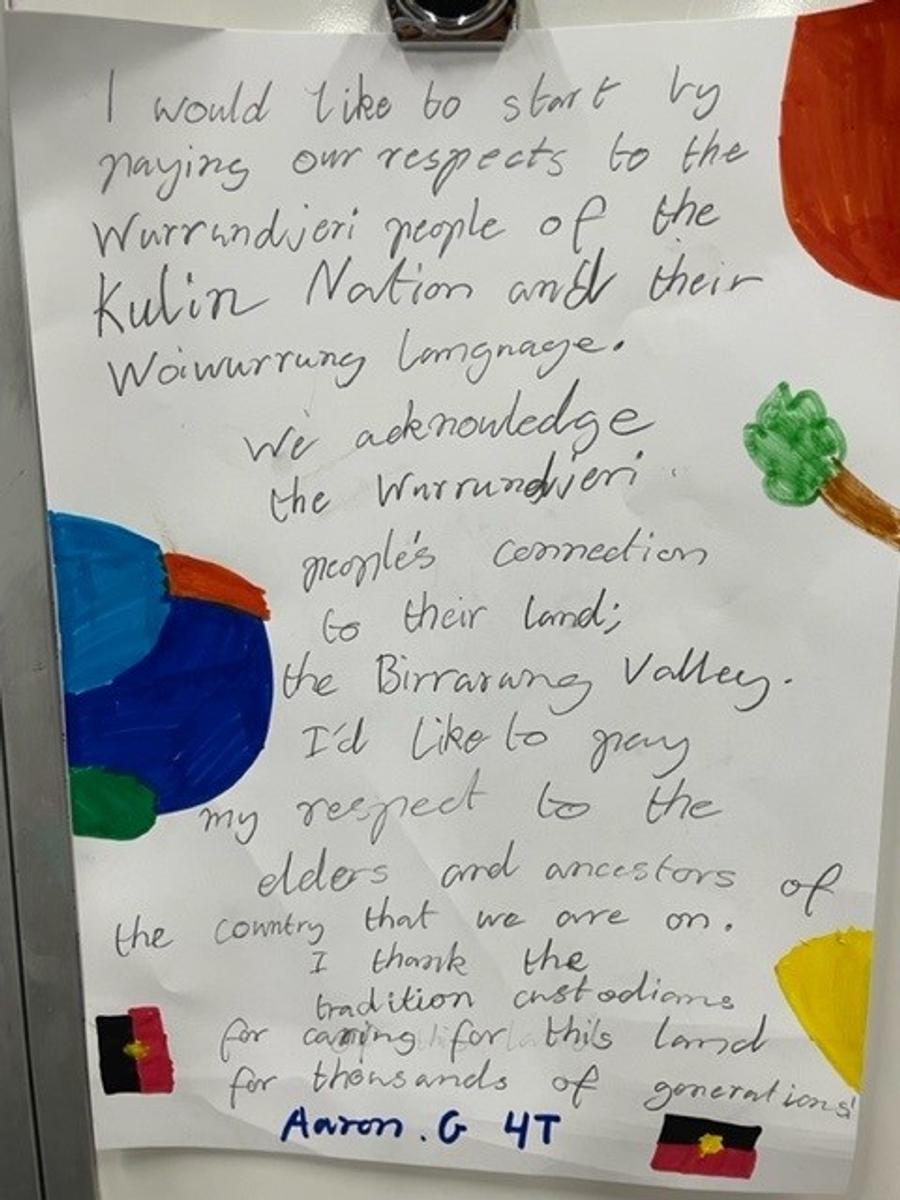 I would like to start by
paying our respects to the
Wurrundjeri people of the
Kulin Nation and their
Woiwurrung language.
We acknowledge
the Wurrundjeri
people's connection
to their land;
the Birrarang Valley.
I'd like to pay
my respect to the
elders and ancestors of
the country that we are on.
I thank the
tradition custodians
for caring for this land
for thousands of generations!
Aaron . G 4T